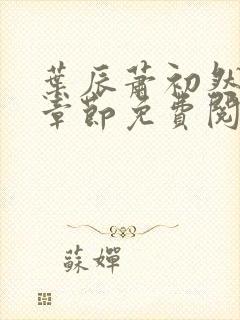 葉辰蕭初然
章節免費閱
蘇嬋